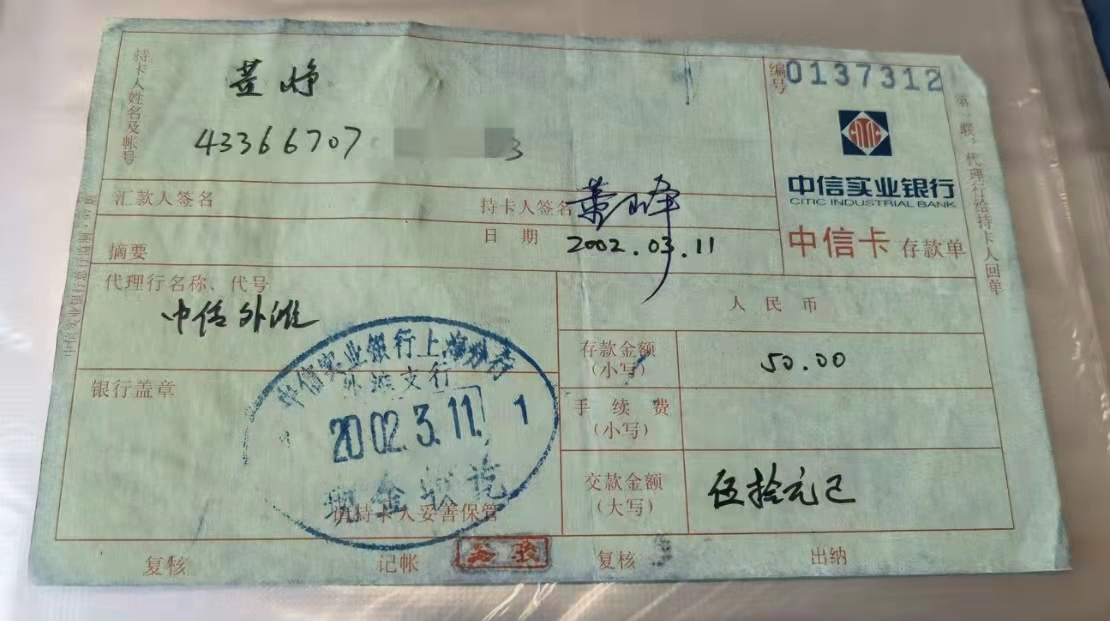 持卡人姓名及帐号
43366707
3
编号
0137312
CITIC
中信实业银行
CITIC INDUSTRIAL BANK
中信卡 存款单
第一联:代理行给持卡人回单
汇款人签名
持卡人签名
日期 2002.03.11
摘要
代理行名称、代号
中信外滩
人民币
存款金额
(小写)
50.00
手续费
(小写)
交款金额
(大写)
伍拾元
银行盖章
中信实业银行上海分行
外滩支行
2002.3.11. 1
现金收讫
请持卡人妥善保管
复核
记帐
复核
出纳